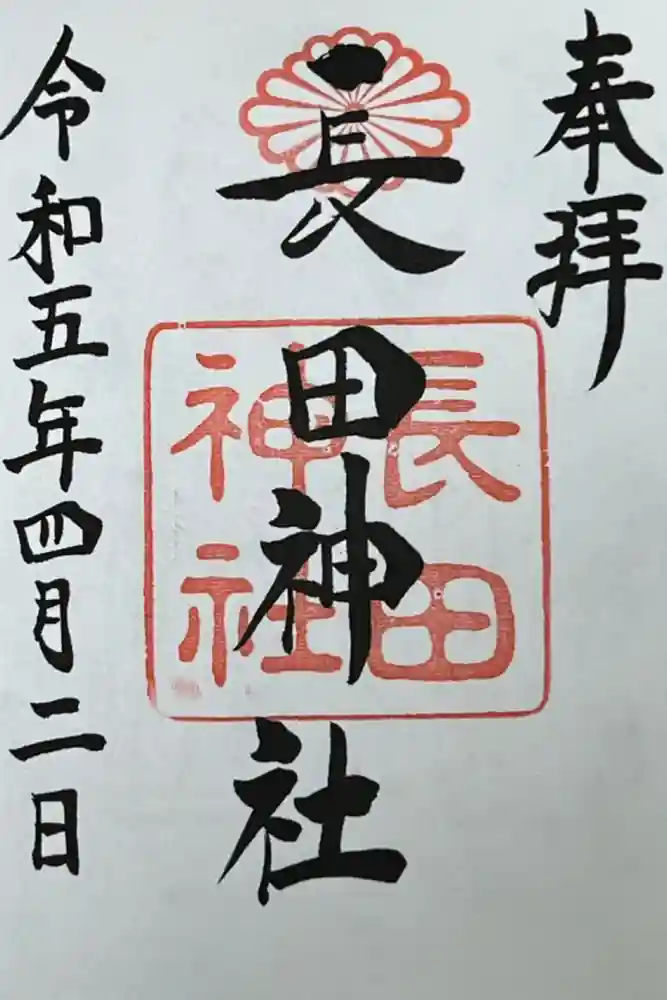 奉拝
長田神社
長田
神社
令和五年四月二日